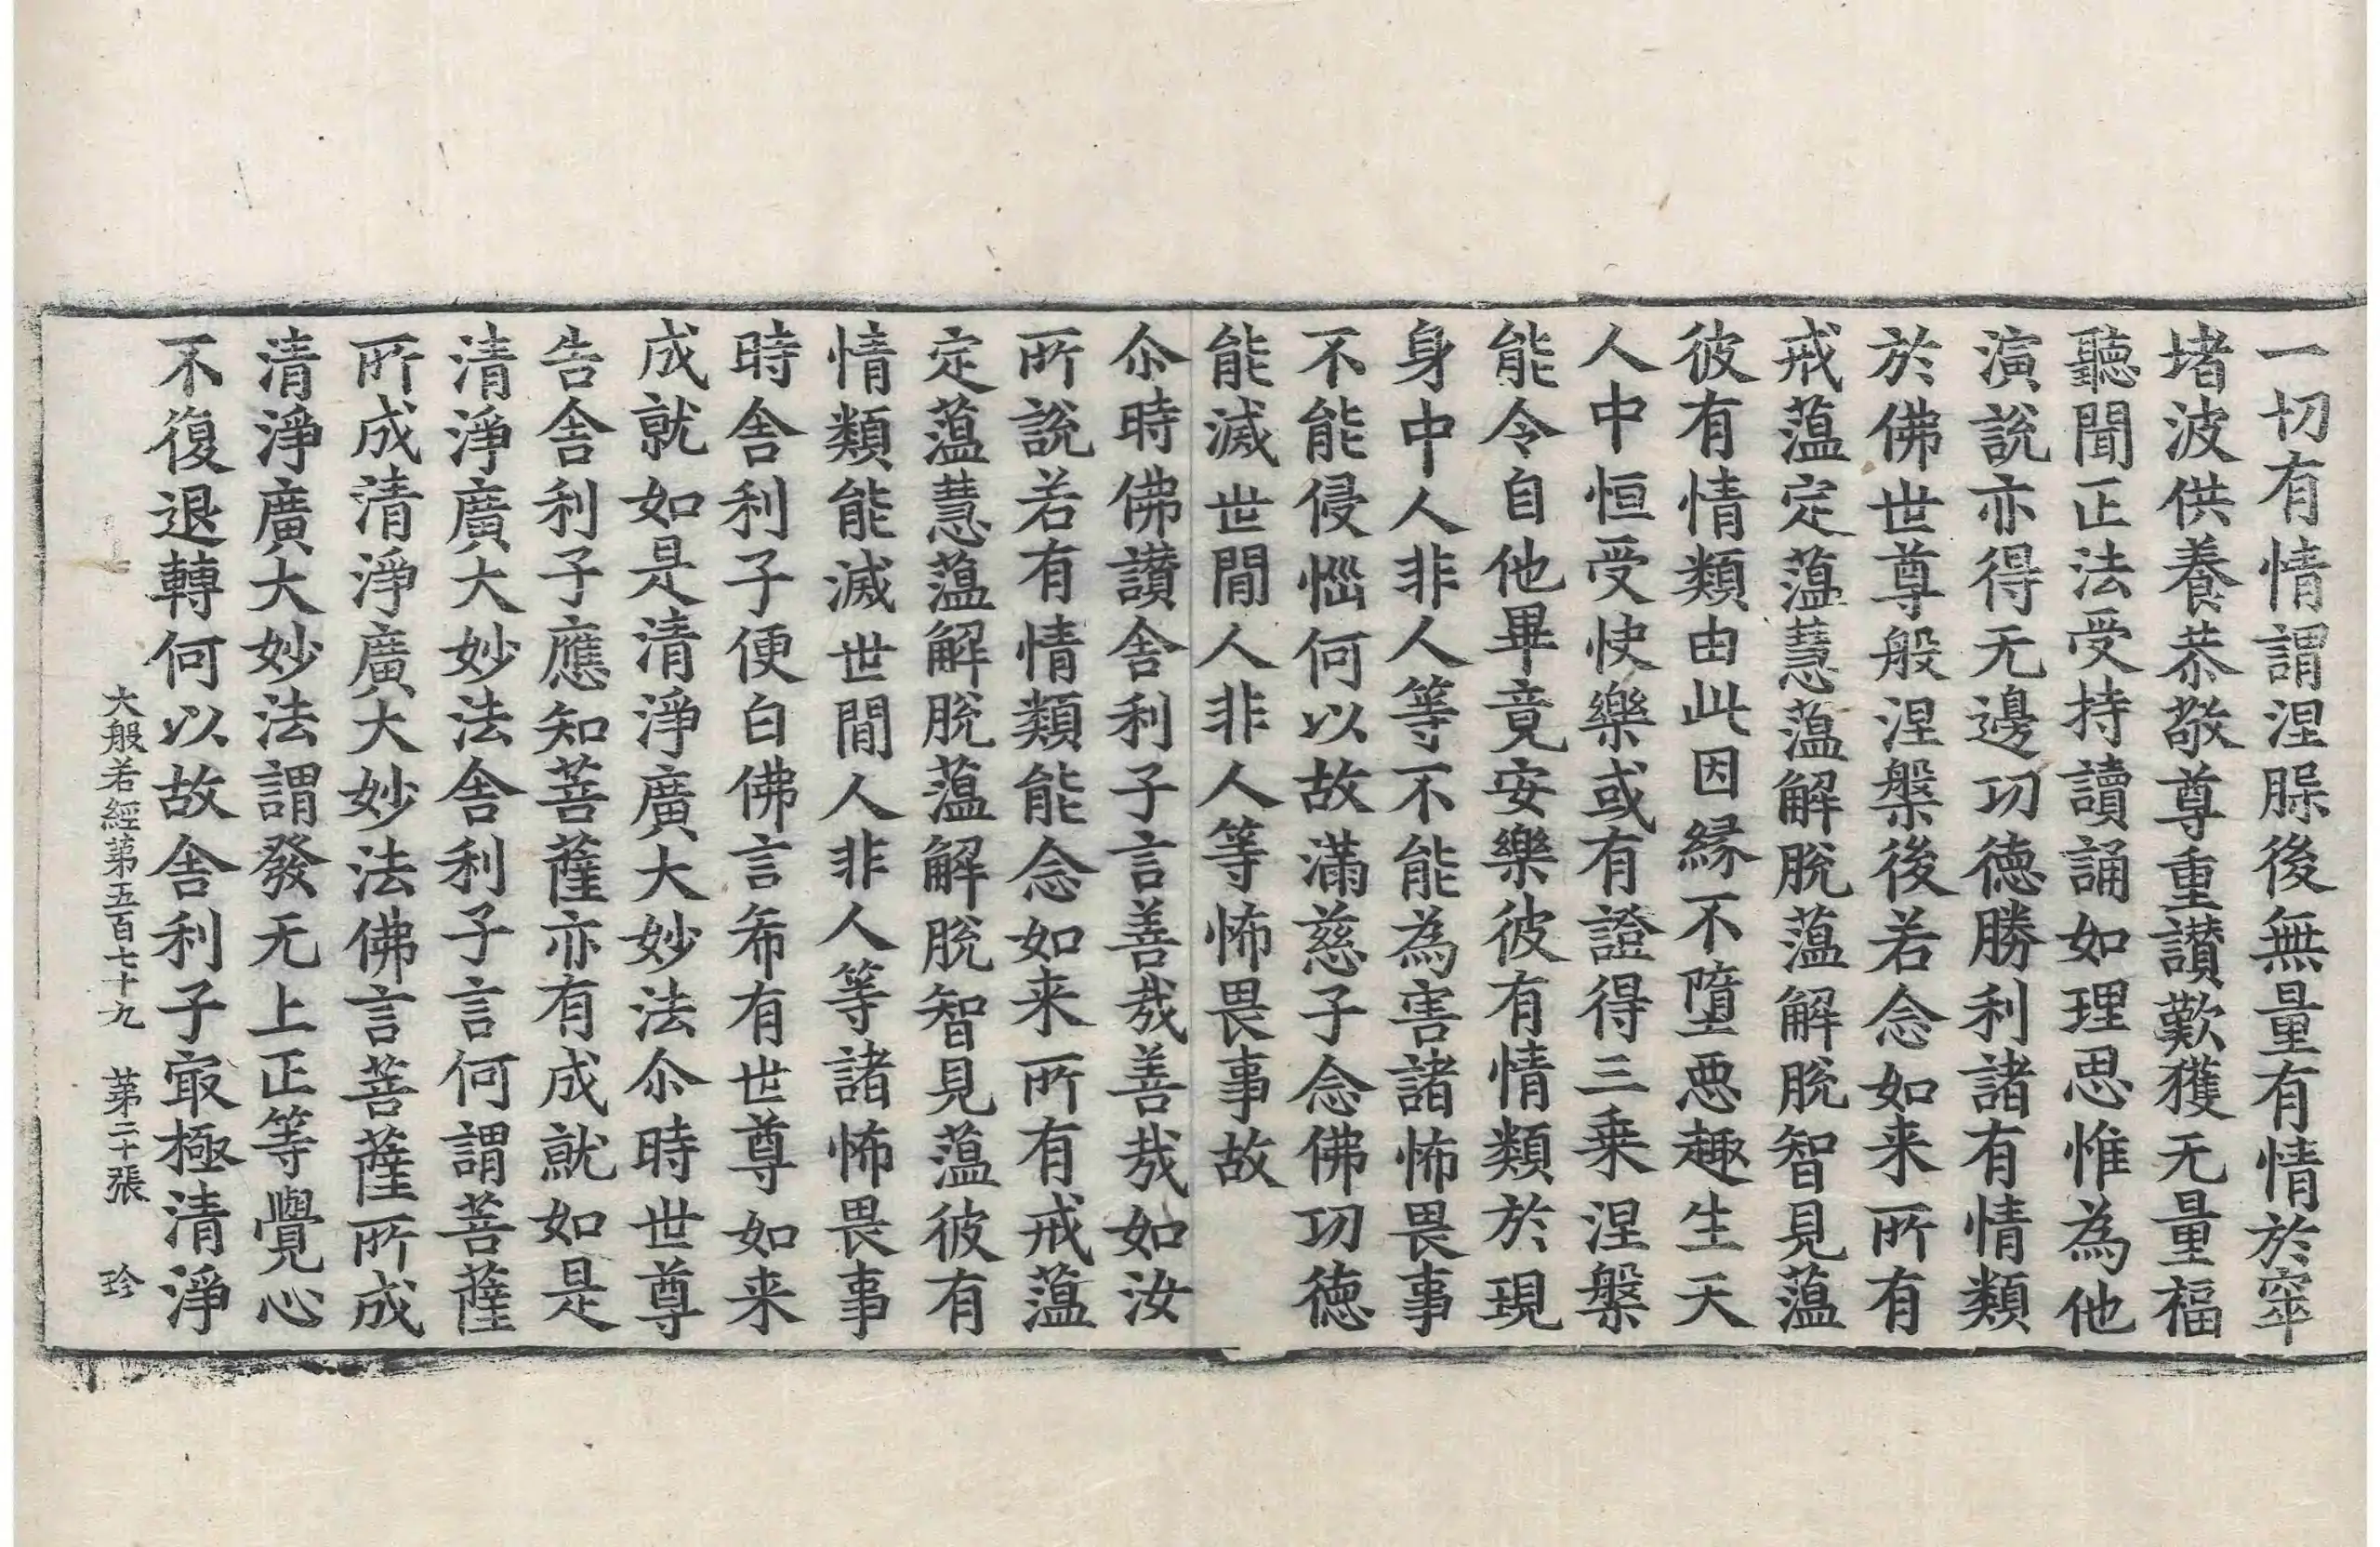 一切有情謂涅腺後無量有情於窣
堵波供養恭敬尊重讃歎獲无量福
聽聞正法受持讀誦如理思惟為他
演說亦得无邊功德勝利諸有情類
於佛世尊般涅槃後若念如来所有
戒蕰定蕰慧蕰解脫蕰解脫智見蕰
彼有情類由此因縁不墮惡趣生天
人中恒受快樂或有證得三乗涅槃
能令自他畢竟安樂彼有情類於現
身中人非人等不能為害諸怖畏事
不能侵惱何以故滿慈子念佛功德
能滅世間人非人等怖畏事故
尒時佛讃舍利子言善哉善哉如汝
所說若有情類能念如来所有戒蕰
定蕰慧蕰解脫蕰解脫智見蕰彼有
情類能滅世間人非人等諸怖畏事
時舍利子便白佛言希有世尊如来
成就如是清淨廣大妙法尒時世尊
告舍利子應知菩薩亦有成就如是
清淨廣大妙法舍利子言何謂菩薩
所成清淨廣大妙法佛言菩薩所成
清淨廣大妙法謂發无上正等覺心
不復退轉何以故舍利子㝡極清淨
大般若經第五百七十九 第二十張 珍